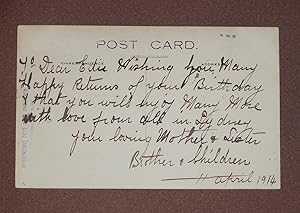 POST CARD.
To Dear Edie Wishing you Many
Happy Returns of your Birthday
& that you will enjoy Many More
with love from all in Sydney
your loving Mother & Sister
Brother & Children
11 April 1914